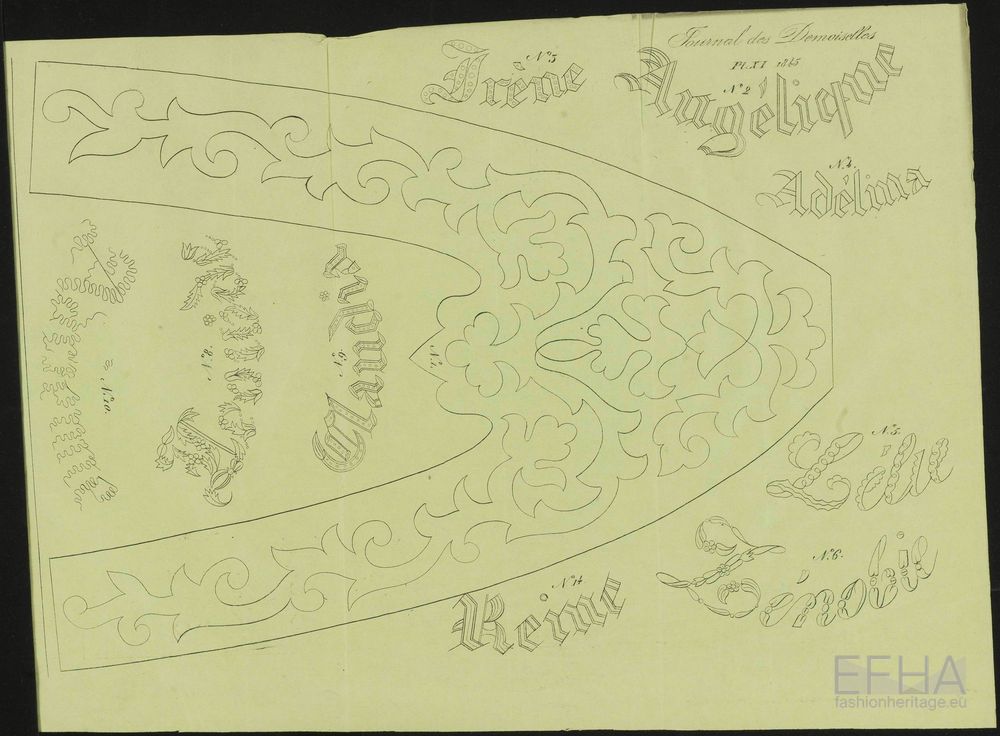 Journal des Demoiselles
Pl. XI 1865
Nº 3
Irène
Nº 2
Angélique
Nº 4.
Adélina
Nº 1.
Nº 9.
Claudia
Nº 8.
Nº 10.
Nº 5.
Nº 6.
Zénobie
Reine
EFHA
fashionheritage.eu